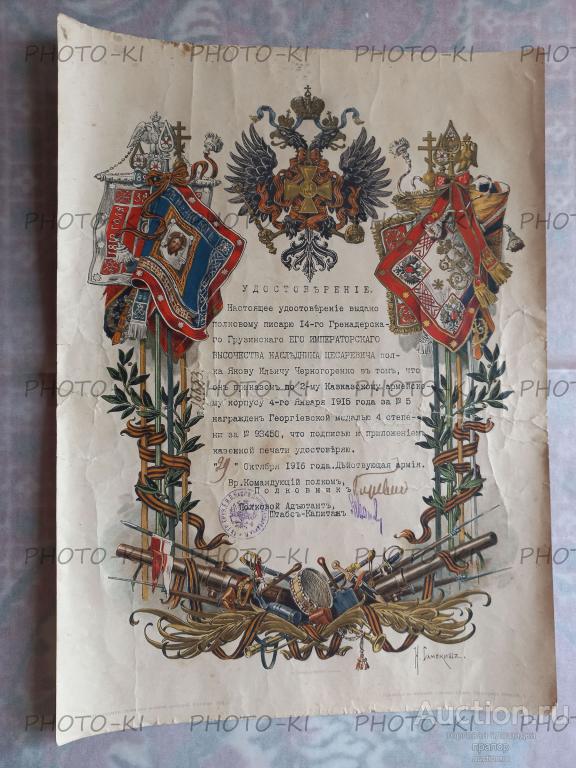 УДОСТОВѢРЕНІЕ.
Настоящее удостовѣреніе выдано
полковому писарю 14-го Гренадерска-
го Грузинскаго ЕГО ИМПЕРАТОРСКАГО
ВЫСОЧЕСТВА НАСЛѢДНИКА ЦЕСАРЕВИЧА пол-
ка Якову Ильичу Черногоренко въ томъ, что
онъ приказомъ по 2-му Кавказскому армейско-
му корпусу 4-го Января 1915 года за № 5
награжденъ Георгіевской медалью 4 степе-
ни за № 93450, что подписью и приложеніемъ
казенной печати удостовѣряю.
"29". Октября 1916 года. Дѣйствующая армія.
Вр. Командующій полкомъ,
Полковникъ
Полковой Адъютантъ,
Штабсъ-Капитанъ
Н. Самокишъ.
PHOTO-KI
Auction.ru
торговая площадка
прапор